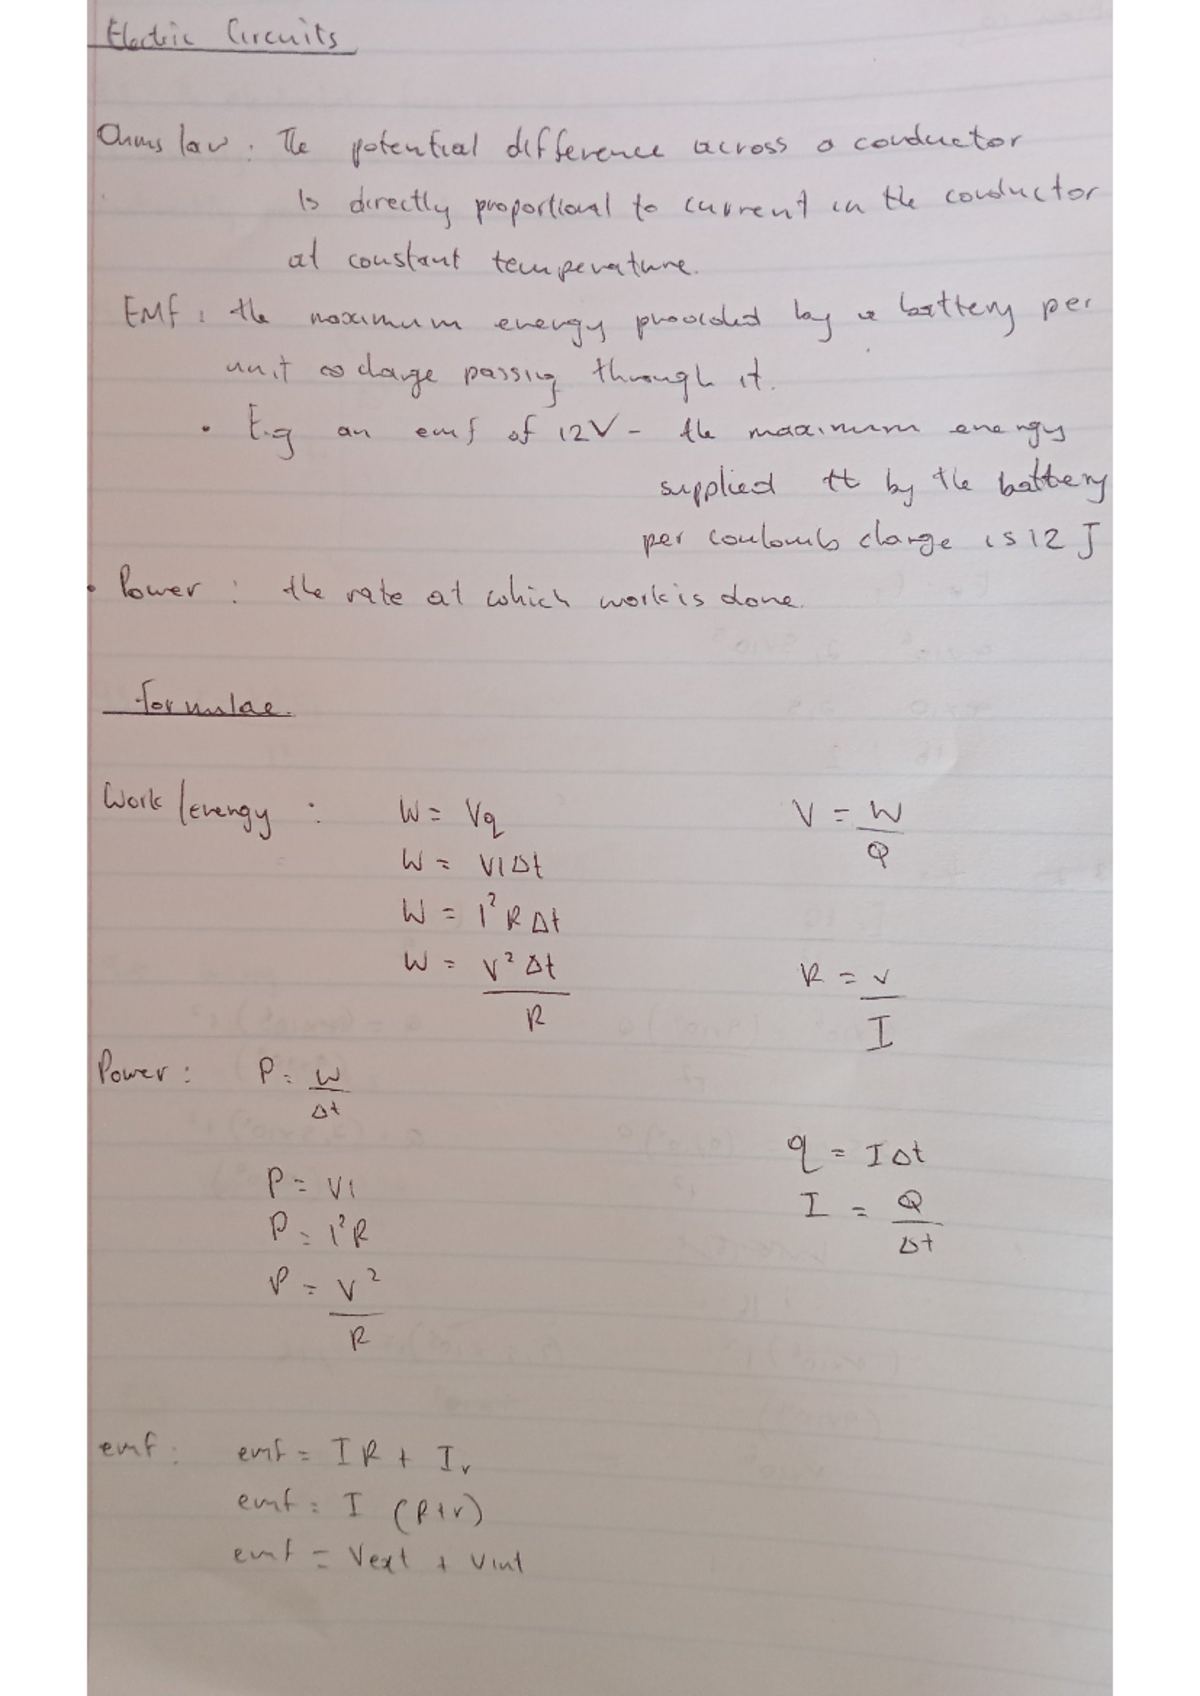 Electric Circuits
Ohms law: The potential difference across a conductor
is directly proportional to current in the conductor
at constant temperature.
EMF: the maximum energy provided by a battery per
unit charge passing through it.
• E.g an emf of 12V - the maximum energy
supplied by the battery
per coulomb charge is 12 J
• Power: the rate at which work is done.
formulae.
Work/energy: W = Vq
W = VIΔt
W = I²RΔt
W = V²Δt
R
V = W
Q
R = V
I
Power: P = W
Δt
P = VI
P = I²R
P = V²
R
q = IΔt
I = Q
Δt
emf: emf = IR + Ir
emf = I (R+r)
emf = Vext + Vint